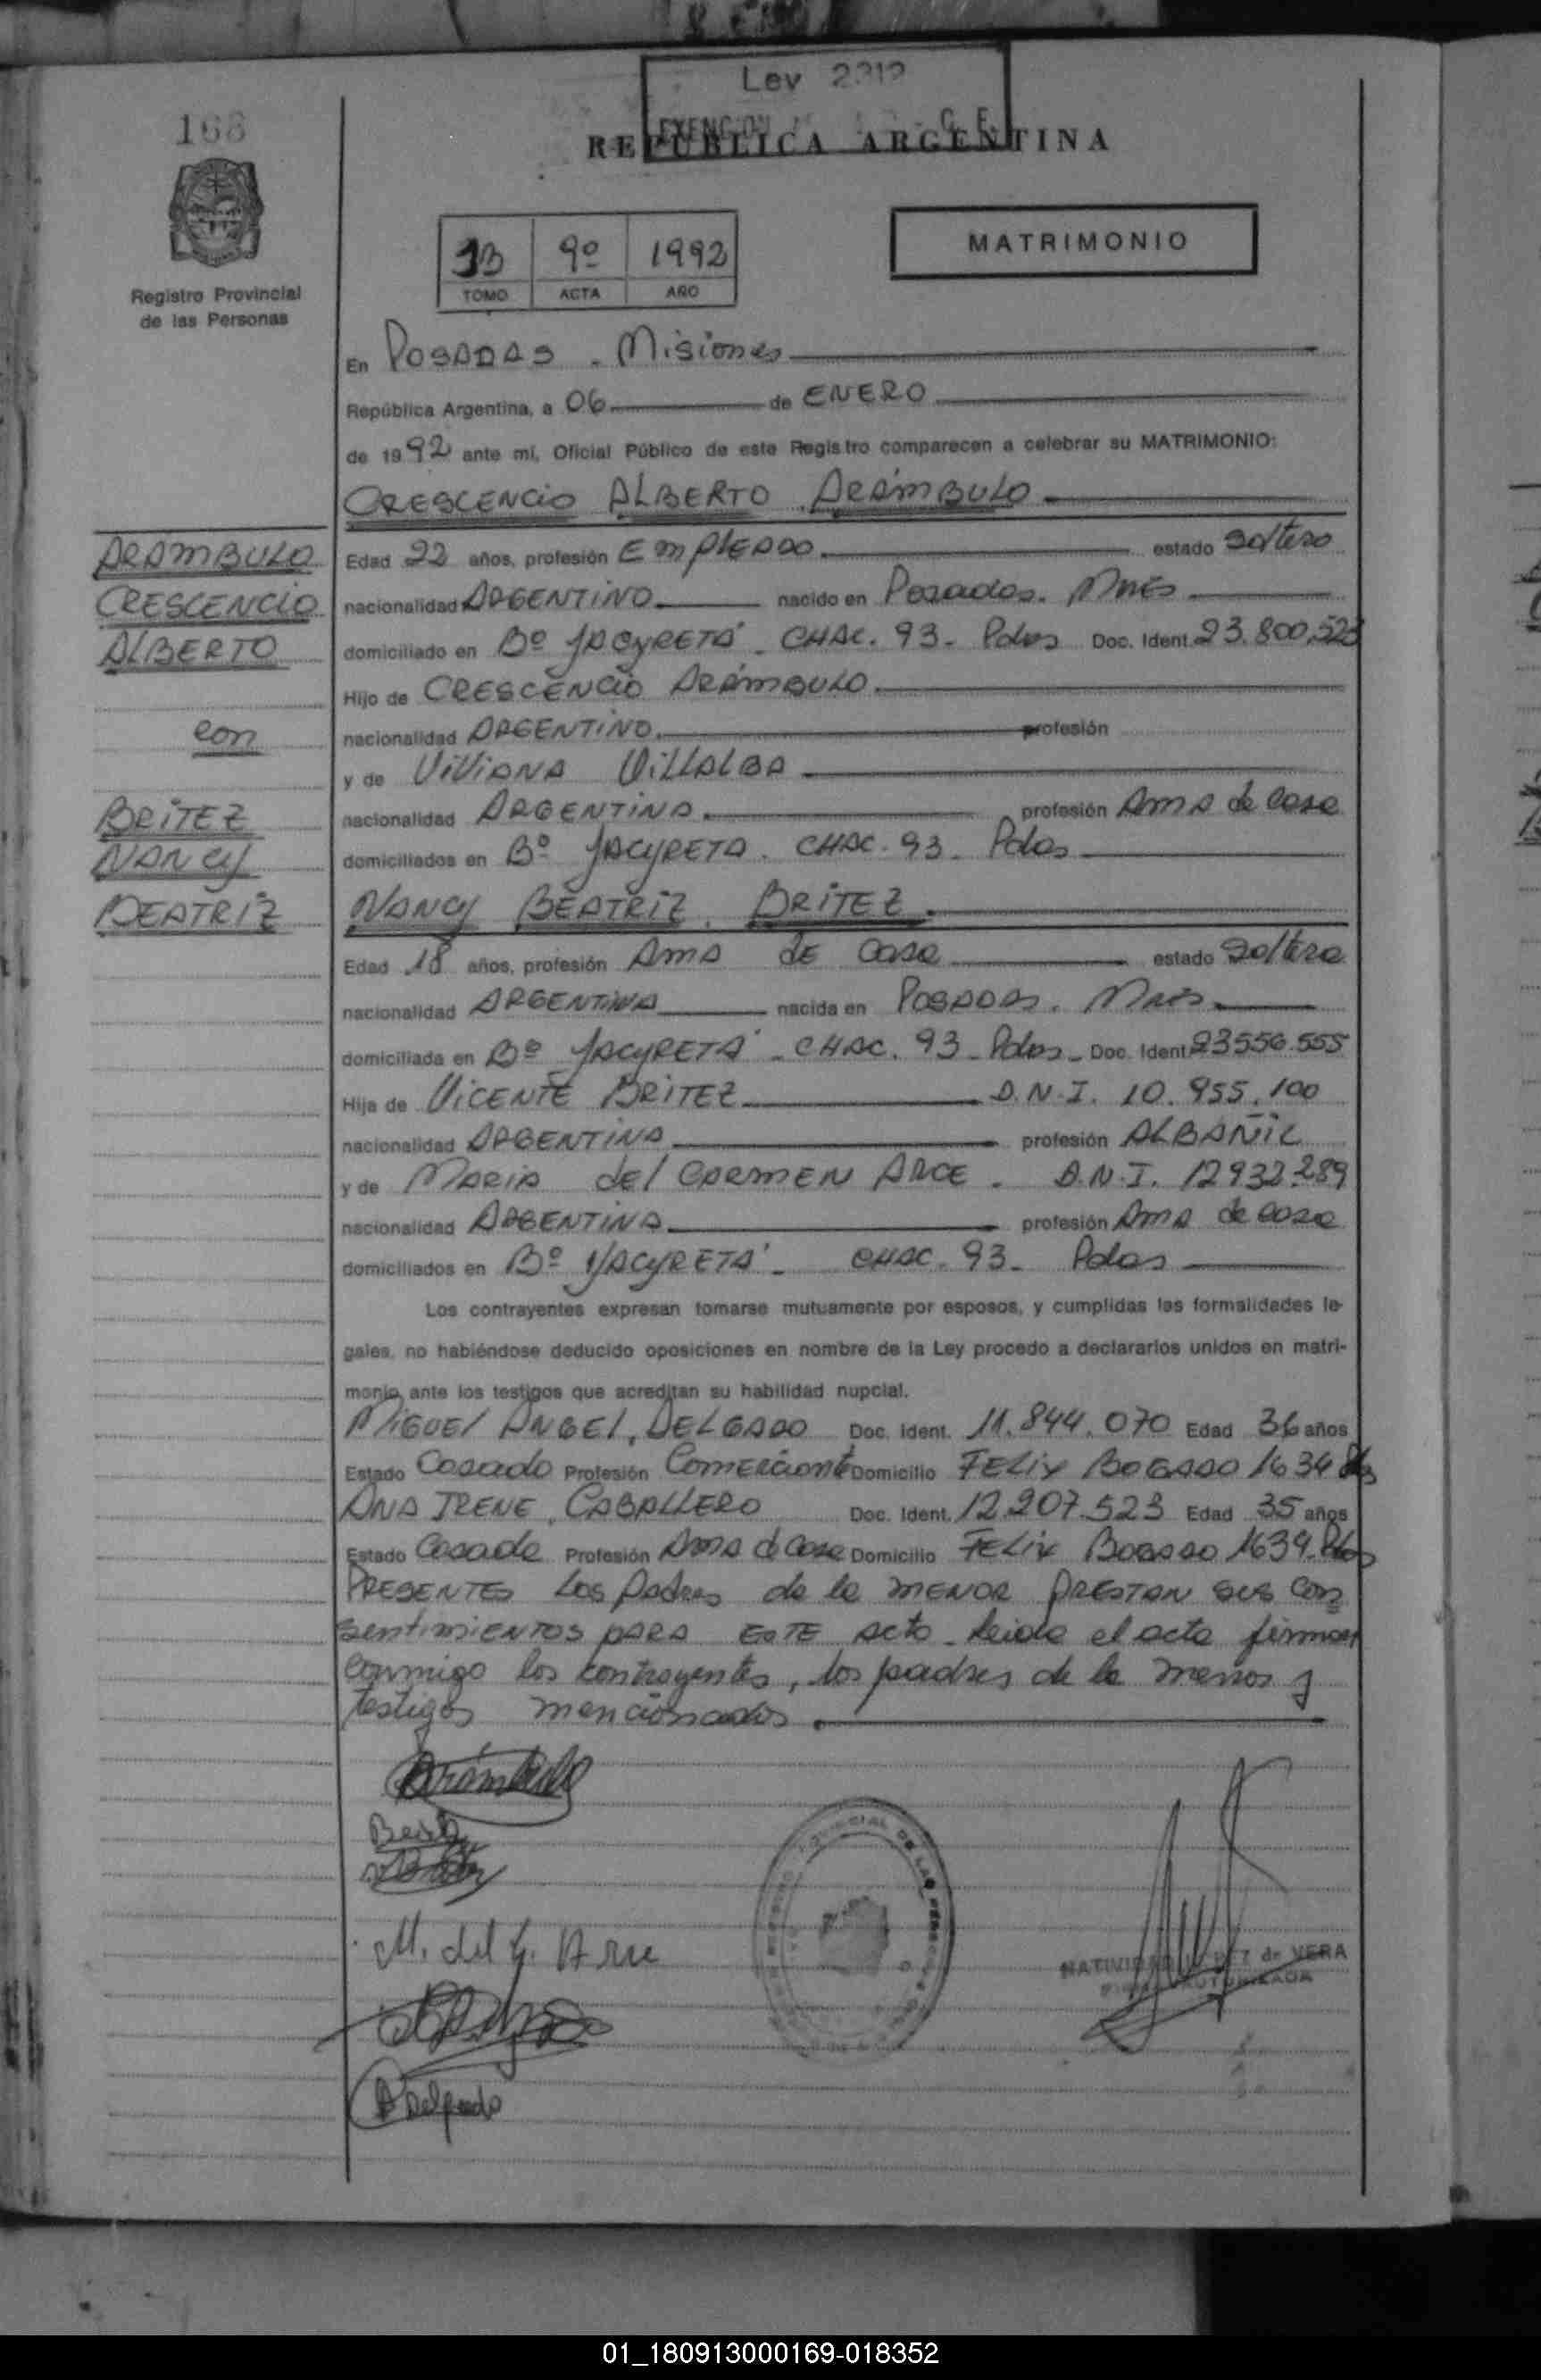 Ley 2312
EXENCION
168
REPUBLICA ARGENTINA
Registro Provincial
de las Personas
13 9º 1992
TOMO ACTA AÑO
MATRIMONIO
En POSADAS - Misiones
República Argentina, a 06 de ENERO
de 1992 ante mí, Oficial Público de este Registro comparecen a celebrar su MATRIMONIO:
CRESCENCIO ALBERTO ARÁMBULO
ARAMBULO
CRESCENCIO
ALBERTO
con
BRITEZ
NANCY
BEATRIZ
Edad 22 años, profesión EMPLEADO estado Soltero
nacionalidad ARGENTINO nacido en Posadas. Mnes
domiciliado en Bº YACYRETÁ - CHAC. 93 - Pdas Doc. Ident. 23.800.523
Hijo de CRESCENCIO ARÁMBULO
nacionalidad ARGENTINO profesión
y de VIVIANA VILLALBA
nacionalidad ARGENTINA profesión Ama de Casa
domiciliados en Bº YACYRETA. CHAC. 93 - Pdas
NANCY BEATRIZ BRITEZ
Edad 18 años, profesión AMA DE Casa estado Soltera
nacionalidad ARGENTINA nacida en POSADAS. Mnes
domiciliada en Bº YACYRETÁ - CHAC. 93 - Pdas - Doc. Ident. 23556.555
Hija de VICENTE BRITEZ D.N.I. 10.955.100
nacionalidad ARGENTINA profesión ALBAÑIL
y de MARIA del CARMEN ARCE. D.N.I. 12932.289
nacionalidad ARGENTINA profesión Ama de casa
domiciliados en Bº YACYRETÁ - CHAC. 93 - Pdas
Los contrayentes expresan tomarse mutuamente por esposos, y cumplidas las formalidades le-
gales, no habiéndose deducido oposiciones en nombre de la Ley procedo a declararlos unidos en matri-
monio, ante los testigos que acreditan su habilidad nupcial.
MIGUEL ANGEL, DELGADO Doc. Ident. 11.844.070 Edad 36 años
Estado Casado Profesión Comerciante Domicilio FELIX BOGADO 1634 Pdas
ANA IRENE, CABALLERO Doc. Ident. 12.207.523 Edad 35 años
Estado Casada Profesión Ama de Casa Domicilio FELIX BOGADO 1634. Pdas
PRESENTES los padres de la MENOR PRESTAN sus con
sentimientos PARA ESTE acto - leida el acta firman
conmigo los contrayentes, los padres de la menor y
testigos mencionados.
Arámbulo
M. del C. Arce
NATIVIDAD de VERA
AUTORIZADA
A Delgado
01_180913000169-018352